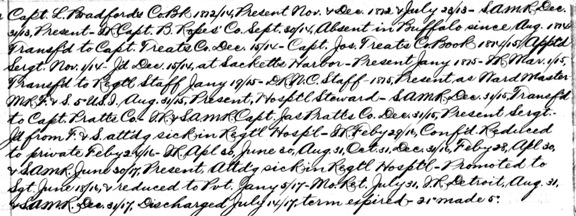 Capt. L. Bradfords Co Bk 1812/14, Present Nov. & Dec. 1812 & July 28/13 - S.A.M.R. Dec.
31/13, Present - I.R. Capt. B. Ropes' Co. Sept. 30/14, Absent in Buffalo since Aug. 1814
Transf'd to Capt. Treats Co. Dec. 15/14 - Capt. Jos. Treats Co Book 1814/15, Apptd
Sergt. Nov. 1/14 - Jd Dec. 15/14, at Sacketts Harbor - Present Jany 1815 - I.R. Mar. 1/15,
Transf'd to Regtl Staff Jany 19/15 - D.R. N.C. Staff - 1815, Present as Ward Master
M.R. F. & S. 5 U.S.I., Aug. 31/15, Present, Hosptl Steward - S.A.M.R. Dec. 31/15, Transf'd
to Capt. Pratts Co. I.R. & S.A.M.R. Capt. Jas Pratts Co. Dec. 31/15, Present Sergt. -
Jd from F. & S. attdg sick in Regtl Hospl - I.R. Feby 29/16, Conf'd. Reduced
to private Feby 29/16 - I.R. Apl 30, June 30, Aug. 31, Oct. 31, Dec. 31/16, Feby 28, Apl 30,
& S.A.M.R. June 30/17, Present, Attdg sick in Regtl Hosptl - Promoted to
Sgt. June 18/16, & reduced to Pvt. Jany 5/17 - Mo. Ret. July 31, I.R. Detroit, Aug. 31,
& S.A.M.R. Dec. 31/17, Discharged July 14/17, term expired - 21 made 5.